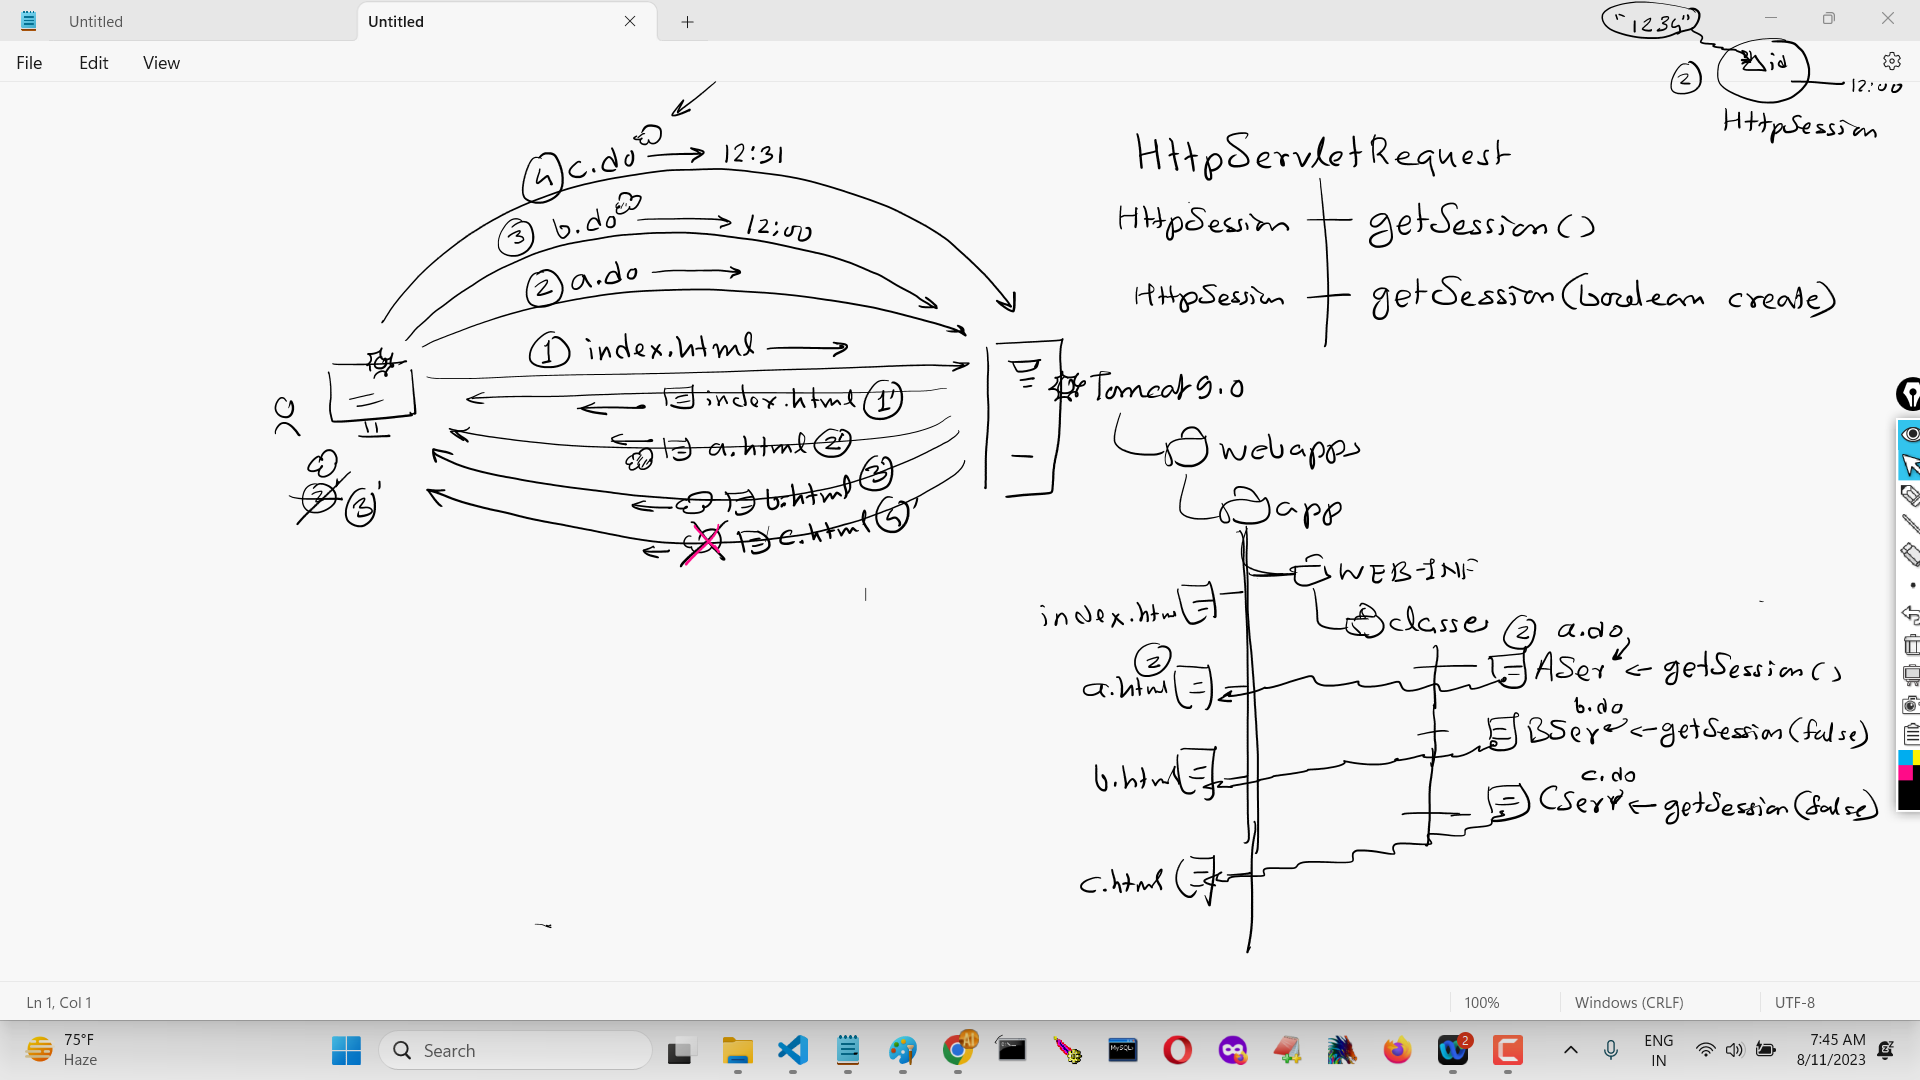 Untitled
Untitled
File Edit View
"1234"
2
id
12:00
HttpSession
4 c.do 12:31
3 b.do 12:00
2 a.do
1 index.html
index.html 1'
a.html 2'
b.html 3'
c.html 4'
3'
HttpServletRequest
HttpSession getSession()
HttpSession getSession(boolean create)
Tomcat 9.0
webapps
app
WEB-INF
classes
index.html
2
a.html
b.html
c.html
2 a.do
ASer ← getSession()
b.do
BSer ← getSession(false)
c.do
CSer ← getSession(false)
Ln 1, Col 1 100% Windows (CRLF) UTF-8
75°F
Haze
Search
AI
MySQL
2
ENG
IN
7:45 AM
8/11/2023